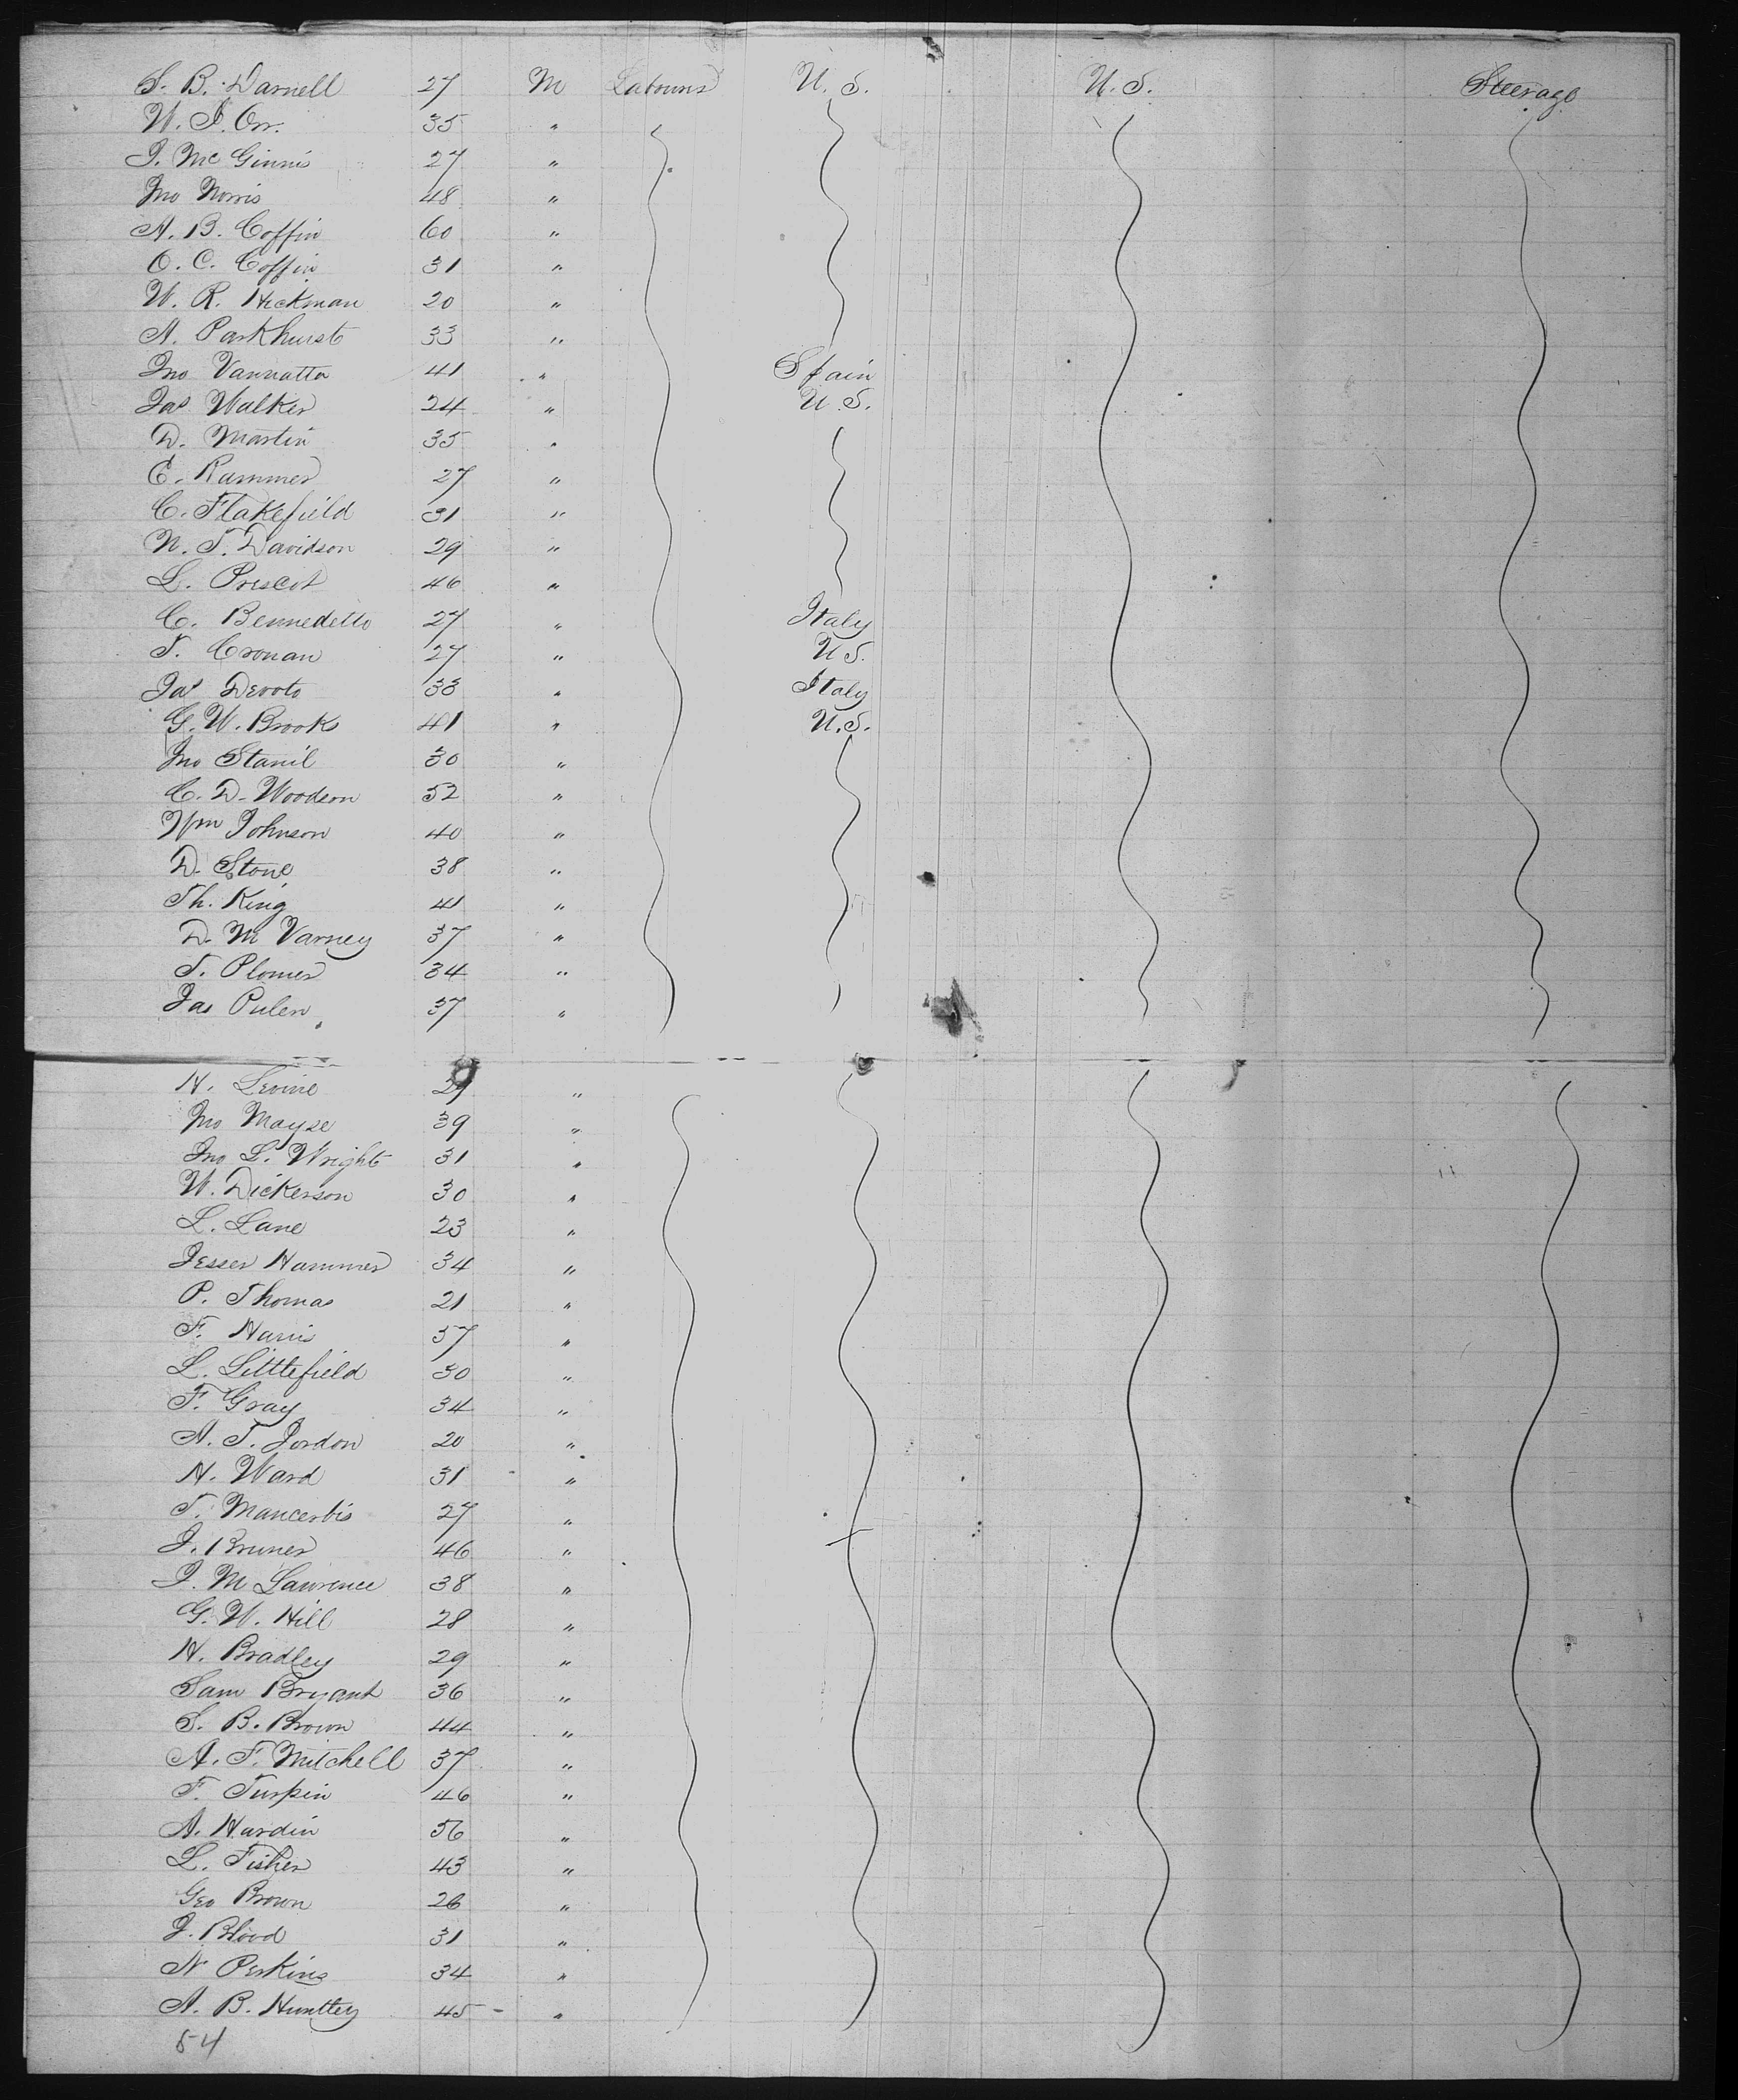 S. B. Darnell 27 M Labourer U. S. U. S. Steerage
W. J. Orr. 35 "
J. McGinnis 27 "
Jno Norris 48 "
A. B. Coffin 60 "
O. C. Coffin 31 "
W. R. Hickman 20 "
A. Parkhurst 33 "
Jno Vannatta 41 " Spain
Jas Walker 24 " U. S.
D. Martin 35 "
E. Rammer 27 "
C. Flakefield 31 "
N. T. Davidson 29 "
L. Prescot 46 "
C. Bennedetto 27 " Italy
T. Cronan 27 " U S.
Jas Devoto 33 " Italy
G. W. Brooks 41 " U. S.
Jno Stanil 30 "
C. D. Woodson 52 "
Wm Johnson 40 "
D. Stone 38 "
Th. King 41 "
D. M Varney 37 "
T. Plomer 34 "
Jas Pulen 37 "
H. Levine 29 "
Jno Mayse 39 "
Jno L. Wright 31 "
W. Dickerson 30 "
L. Lane 23 "
Jesser Hammer 34 "
P. Thomas 21 "
F. Harris 37 "
L. Littlefield 30 "
F. Gray 34 "
A. T. Jordon 20 "
H. Ward 31 "
T. 27 "
J. Bruner 46 "
J. M Lawrence 38 "
G. W. Hill 28 "
H. Bradley 29 "
Sam Bryant 36 "
S. B. Brown 44 "
A. F. Mitchell 37 "
F. Turpin 46 "
A. Hardin 56 "
L. Fisher 43 "
Geo Brown 26 "
J. Blood 31 "
N Perkins 34 "
A. B. Huntley 45 "
54